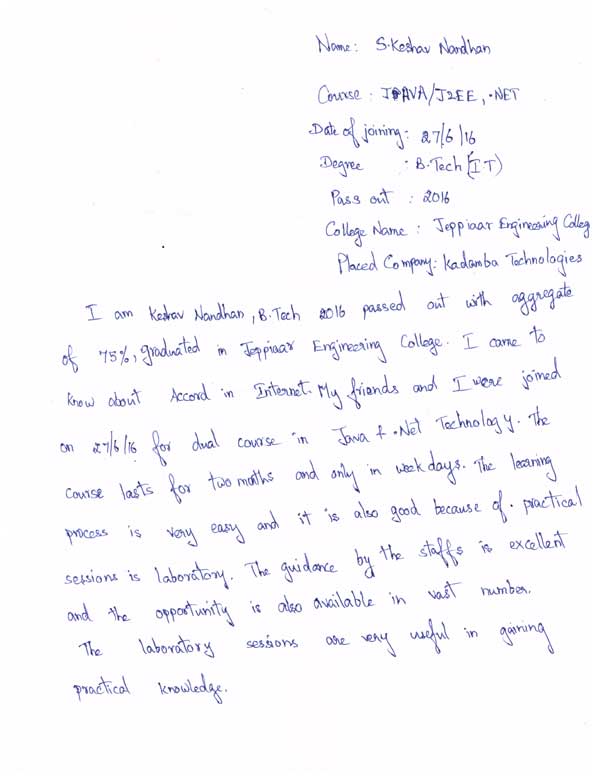 Name: S.Keshav Nandhan
Course: JAVA/J2EE, .NET
Date of joining: 27/6/16
Degree : B.Tech (I.T)
Pass out : 2016
College Name : Jeppiaar Engineering Colleg
Placed Company: Kadamba Technologies
I am Keshav Nandhan, B.Tech 2016 passed out with aggregate
of 75%, graduated in Jeppiaar Engineering College. I came to
know about Accord in Internet. My friends and I were joined
on 27/6/16 for dual course in Java & .Net Technology. The
course lasts for two months and only in week days. The learning
process is very easy and it is also good because of . practical
sessions is laboratory. The guidance by the staffs is excellent
and the opportunity is also available in vast number.
The laboratory sessions are very useful in gaining
practical knowledge.